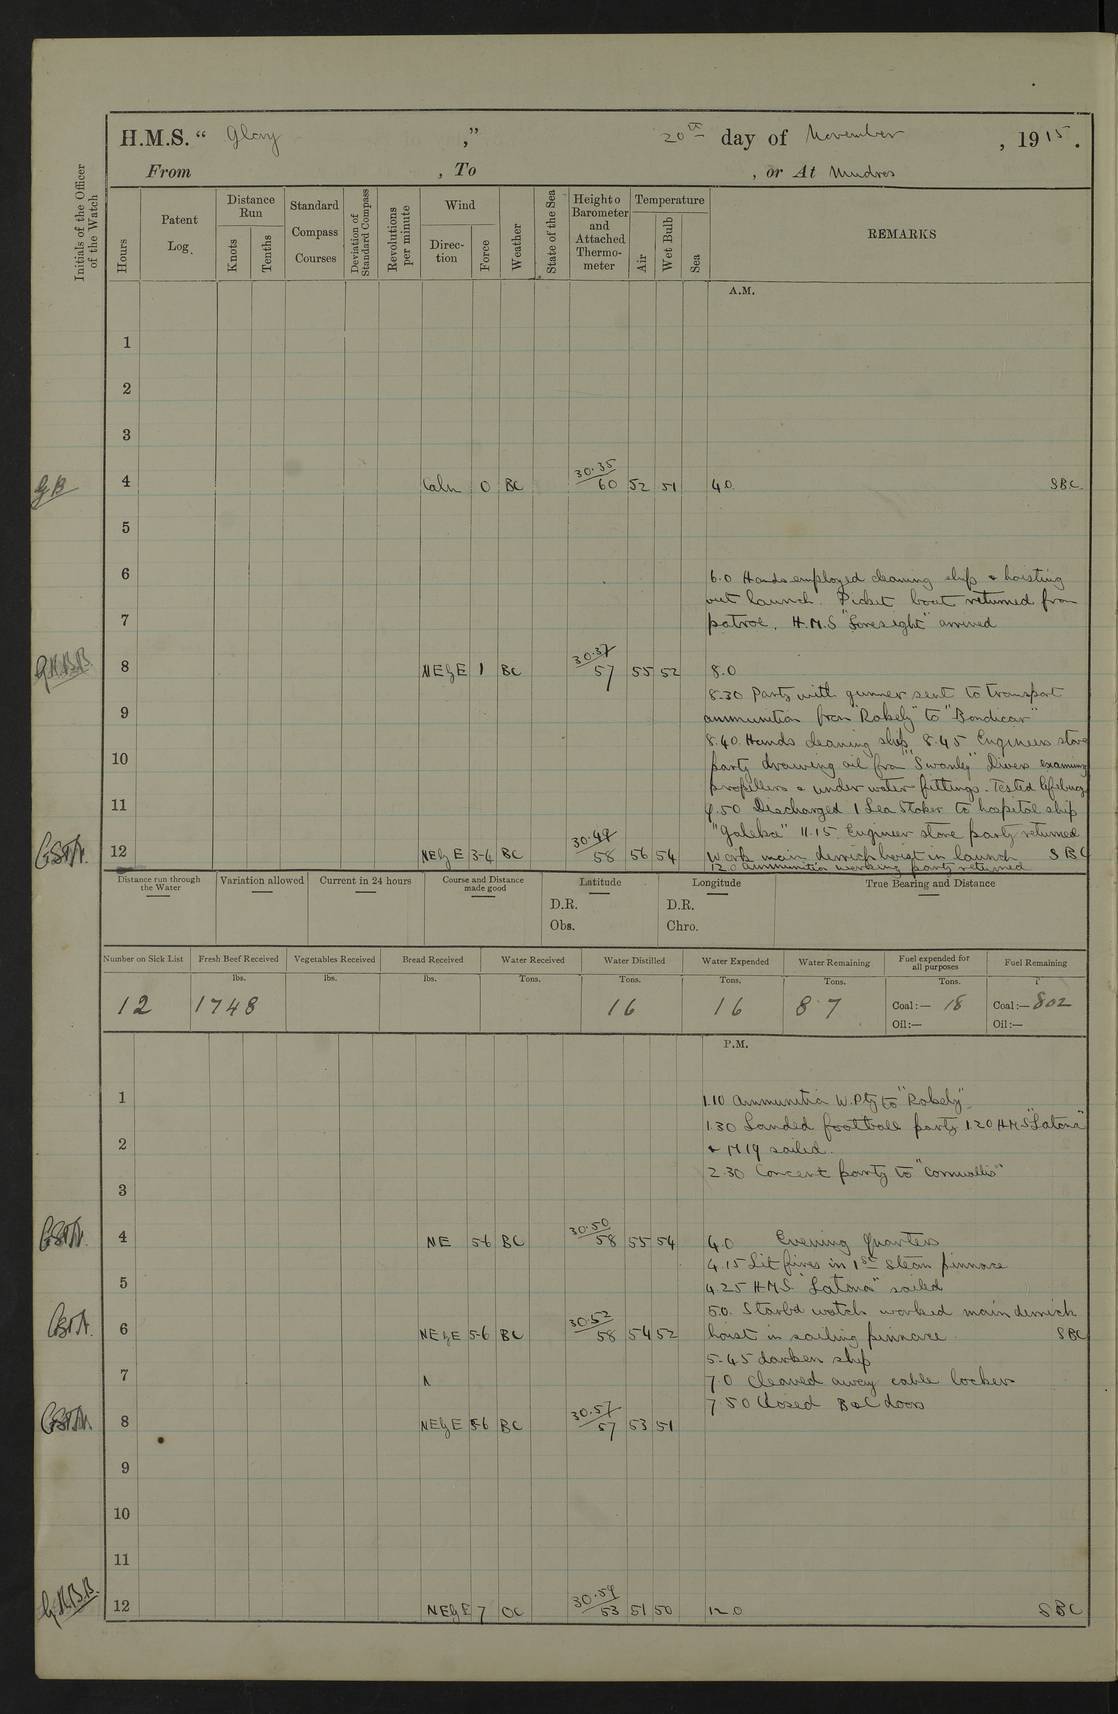 H.M.S. " Glory ," 20th day of November , 1915.
From , To , or At Mudros
Initials of the Officer of the Watch
Hours
Patent Log.
Distance Run
Knots
Tenths
Standard Compass Courses
Deviation of Standard Compass
Revolutions per minute
Wind
Direction
Force
Weather
State of the Sea
Height o Barometer and Attached Thermometer
Temperature
Air
Wet Bulb
Sea
REMARKS
A.M.
1
2
3
4 Calm 0 BC 30.35 60 52 51 4.0 SBC
5
6 6.0 Hands employed cleaning ship & hoisting
out launch. Picket boat returned from
7 patrol. H.M.S "Foresight" arrived
G.H.B.B. 8 NEbyE 1 BC 30.37 57 55 52 8.0
8.30 Party with gunner sent to transport
9 ammunition from "Rokely" to "Bandicar"
8.40 Hands cleaning ship. 8.45 Engineers store
10 party drawing oil from "Swanley" Divers examining
propellers & under water fittings. Tested lifebuoys
11 9.50 Discharged 1 Sea Stoker to hospital ship
"Galeka" 11.15 Engineer store party returned
12 NEbyE 3-4 BC 30.49 58 56 54 Work main derrick hoist in launch SBC
12.0 ammunition working party returned
Distance run through the Water
Variation allowed
Current in 24 hours
Course and Distance made good
Latitude
D.R.
Obs.
Longitude
D.R.
Chro.
True Bearing and Distance
Number on Sick List
Fresh Beef Received
Vegetables Received
Bread Received
Water Received
Water Distilled
Water Expended
Water Remaining
Fuel expended for all purposes
Fuel Remaining
lbs. lbs. lbs. Tons. Tons. Tons. Tons. Tons. T
12 1748 16 16 87 Coal:— 18 Coal:— 802
Oil:— Oil:—
P.M.
1 1.10 Ammunition W.Pty to "Rokely"
1.30 Landed football party 1.20 H.M.S "Latona"
2 & M19 sailed.
2.30 Concert party to "Cornwallis"
3
4 NE 5-6 BC 30.50 58 55 54 4.0 Evening Quarters
4.15 Lit fires in 1st Steam pinnace
5 4.25 H.M.S. "Latona" sailed
5.0. Starbd watch worked main derrick
6 NEbyE 5-6 BC 30.52 58 54 52 hoist in sailing pinnace. SBC
5.45 darken ship
7 7.0 Cleared away cable locker
7.50 Closed B&C doors
8 NEbyE 5-6 BC 30.57 57 53 51
9
10
11
G.H.B.B. 12 NEbyE 7 OC 30.59 53 51 50 12.0 SBC